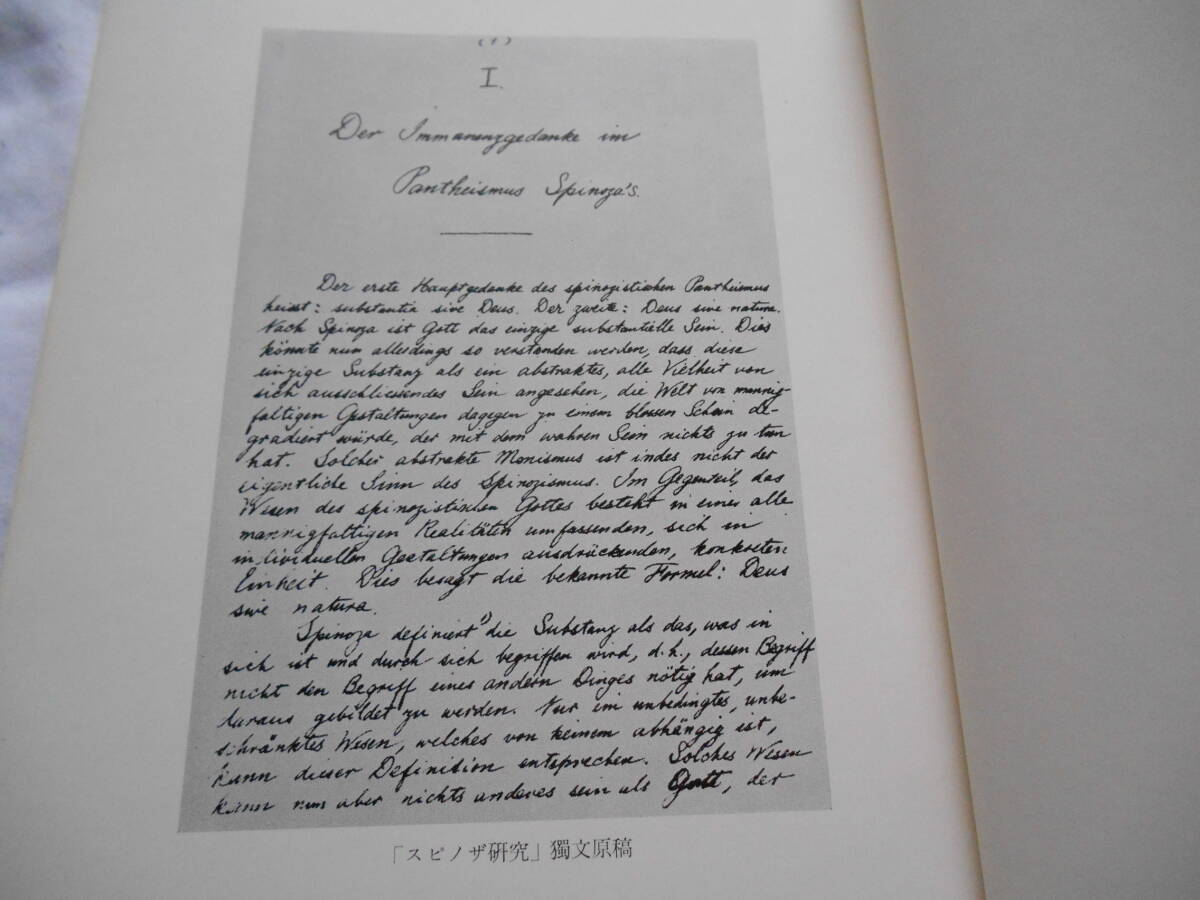 (1)
I.
Der Immanenzgedanke im
Pantheismus Spinoza's.
Der erste Hauptgedanke des spinozistischen Pantheismus
heisst: substantia sive Deus. Der zweite: Deus sive natura.
Nach Spinoza ist Gott das einzige substantielle Sein. Dies
könnte nun allerdings so verstanden werden, dass diese
einzige Substanz als ein abstraktes, alle Vielheit von
sich ausschliessendes Sein angesehen, die Welt von mannig-
faltigen Gestaltungen dagegen zu einem blossen Schein de-
gradiert würde, der mit dem wahren Sein nichts zu tun
hat. Solcher abstrakte Monismus ist indes nicht der
eigentliche Sinn des Spinozismus. Im Gegenteil, das
Wesen des spinozistischen Gottes besteht in einer alle
mannigfaltigen Realitäten umfassenden, sich in
individuellen Gestaltungen ausdrückenden, konkreten
Einheit. Dies besagt die bekannte Formel: Deus
sive natura.
Spinoza definiert 1) die Substanz als das, was in
sich ist und durch sich begriffen wird, d.h., dessen Begriff
nicht den Begriff eines andern Dinges nötig hat, um
daraus gebildet zu werden. Nur im unbedingtes, unbe-
schränktes Wesen, welches von keinem abhängig ist,
kann dieser Definition entsprechen. Solches Wesen
kann nun aber nichts anderes sein als Gott, der
「スピノザ研究」獨文原稿